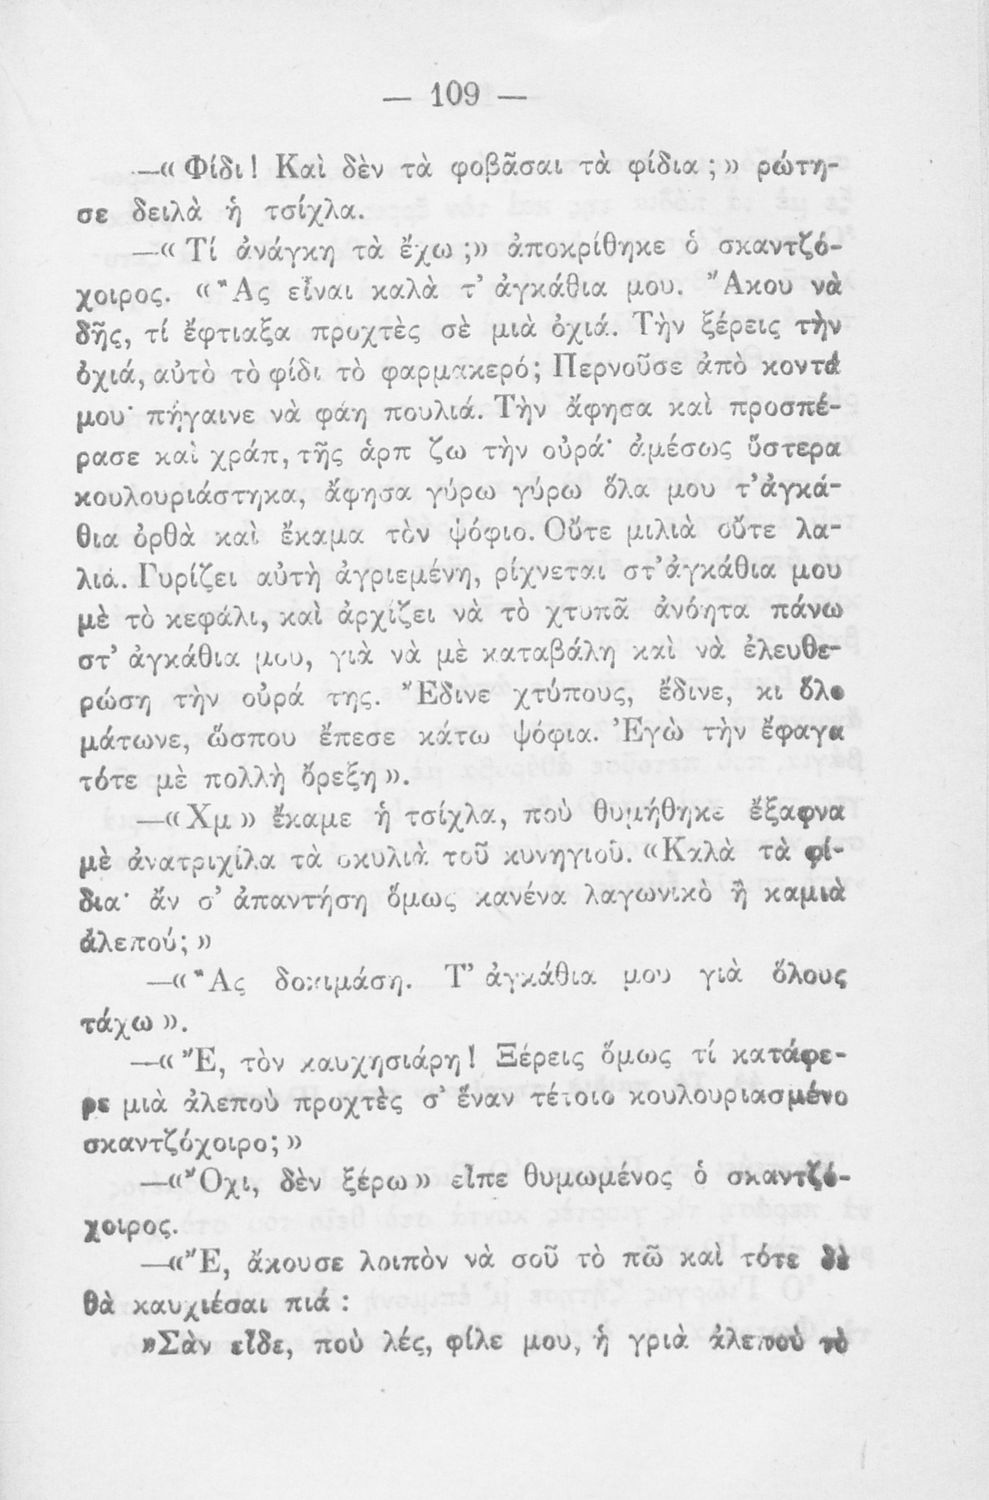 — 109 —
—« Φίδι! Καὶ δὲν τὰ φοβᾶσαι τὰ φίδια ; » ρώτη-
σε δειλὰ ἡ τσίχλα.
—« Τί ἀνάγκη τὰ ἔχω ;» ἀποκρίθηκε ὁ σκαντζό-
χοιρος. «Ἂς εἶναι καλὰ τ' ἀγκάθια μου. Ἄκου νὰ
δῇς, τί ἔφτιαξα προχτὲς σὲ μιὰ ὀχιά. Τὴν ξέρεις τὴν
ὀχιά, αὐτὸ τὸ φίδι τὸ φαρμακερό; Περνοῦσε ἀπὸ κοντά
μου· πήγαινε νὰ φάῃ πουλιά. Τὴν ἄφησα καὶ προσπέ-
ρασε καὶ χράπ, τῆς ἁρπ ζω τὴν οὐρά· ἀμέσως ὕστερα
κουλουριάστηκα, ἄφησα γύρω γύρω ὅλα μου τ' ἀγκά-
θια ὀρθὰ καὶ ἔκαμα τὸν ψόφιο. Οὔτε μιλιὰ οὔτε λα-
λιά. Γυρίζει αὐτὴ ἀγριεμένη, ρίχνεται στ' ἀγκάθια μου
μὲ τὸ κεφάλι, καὶ ἀρχίζει νὰ τὸ χτυπᾶ ἀνόητα πάνω
στ' ἀγκάθια μου, γιὰ νὰ μὲ καταβάλη καὶ νὰ ἐλευθε-
ρώση τὴν οὐρά της. Ἔδινε χτύπους, ἔδινε, κι ὅλο
μάτωνε, ὥσπου ἔπεσε κάτω ψόφια. Ἐγὼ τὴν ἔφαγα
τότε μὲ πολλὴ ὄρεξη ».
—« Χμ » ἔκαμε ἡ τσίχλα, ποὺ θυμήθηκε ἔξαφνα
μὲ ἀνατριχίλα τὰ σκυλιὰ τοῦ κυνηγιοῦ. «Καλὰ τὰ φί-
δια· ἄν σ' ἀπαντήση ὅμως κανένα λαγωνικὸ ἢ καμιὰ
ἀλεπού; »
—«Ἂς δοκιμάση. Τ' ἀγκάθια μου γιὰ ὅλους
τάχω ».
—« Ἔ, τὸν καυχησιάρη! Ξέρεις ὅμως τί κατάφε-
ρε μιὰ ἀλεποὺ προχτὲς σ' ἕναν τέτοιο κουλουριασμένο
σκαντζόχοιρο; »
—«Ὄχι, δὲν ξέρω» εἶπε θυμωμένος ὁ σκαντζό-
χοιρος.
—«Ἔ, ἄκουσε λοιπὸν νὰ σοῦ τὸ πῶ καὶ τότε δὲ
θὰ καυχιέσαι πιά :
»Σὰν εἶδε, ποὺ λές, φίλε μου, ἡ γριὰ ἀλεποὺ τὸ